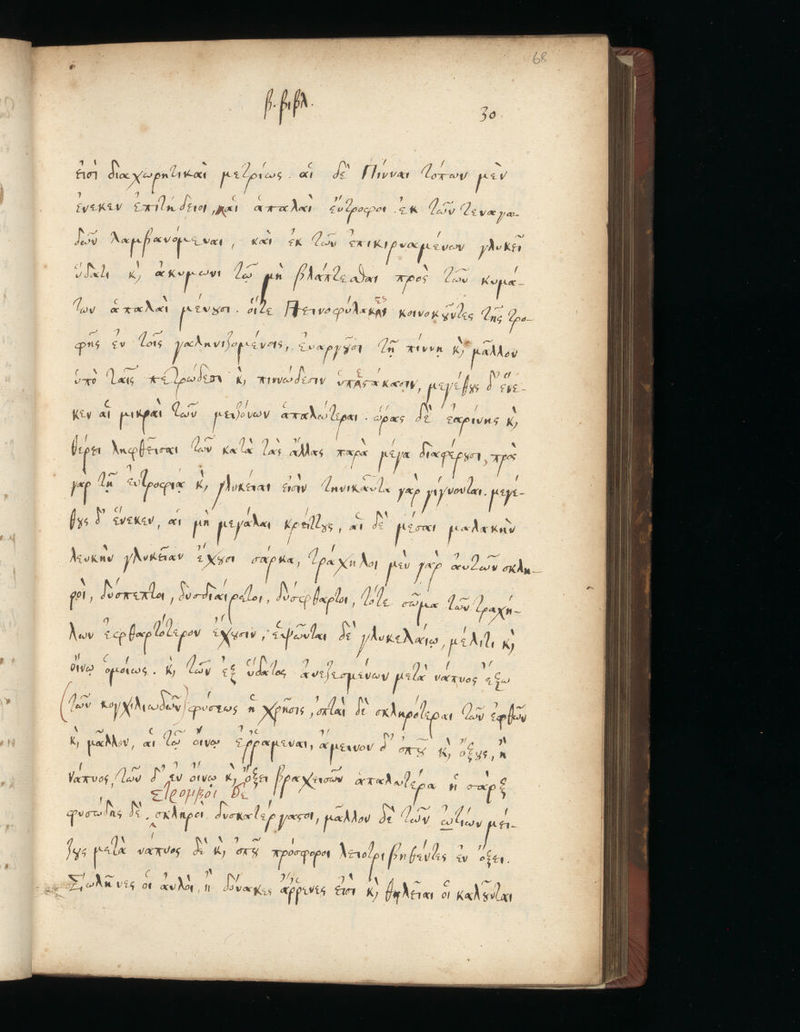 68
β. βιβλ.
30.
εἰσὶ διαχωρητικαὶ μετρίως. αἱ δὲ Πίνναι τόπων μὲν
ἕνεκεν ἐπιτήδειοι, καὶ ἁπαλαὶ εὔτροφοι ἐκ τῶν τεναγω-
δῶν λαμβανόμεναι, καὶ ἐκ τῶν ἐπικιρναμένων γλυκεῖ
ὕδατι κ̀ ἀκυμωνι τῷ μὴ βλάπτεσθαι πρὸς τῶν κυμά-
των ἁπαλαὶ μένουσι. οἵτε Πεινοφύλακες κοινοκοῦντες τῆς τρο-
φῆς ἐν τοῖς γαληνιζομένοις, ἐναργοῦσι τῇ πίννῃ κ̀ μᾶλλον
ὑπὸ ταῖς πετρώδεσι κ̀ πινώδεσιν, μεγέθους δ' ἕνε-
κεν αἱ μικραὶ τῶν μειζόνων ἁπαλώτεραι. ὥρας δὲ ἐαρινῆς κ̀
θέρει ληφθεῖσαι τῶν κατὰ τὰς ἄλλας παρὰ μέγα διαφέρουσι, πρὸς
γαρ τῇ εὐτροφίᾳ κ̀ γλυκεῖαι εἰσὶν τηνικαῦτα γὰρ γίγνονται. μεγέ-
θους δ' ἕνεκεν, αἱ μὴ μεγάλαι κρείττους, αἱ δὲ μέσαι μαλακὴν
λευκὴν γλυκεῖαν ἔχουσι σάρκα, τράχηλοι μὲν γὰρ ἀυτῶν σκλη-
ροὶ, δύσπεπτοι, δυσδιαίρετοι, δύσφθαρτοι, τότε σῶμα τῶν τραχή-
λων ἐφθαρτότερον ἔχουσιν, ἑψῶνται δὲ γλυκελαίῳ, μέλιτι κ̀
οἴνῳ ὁμοίως. κ̀ τῶν ἐξ ὕδατος ἀνεζεσμένων μετὰ νάπυος ἔξω
(τῶν κογχιλιωδῶν) φύσεως ἡ χρῆσις, ὀπταὶ δὲ σκληρότεραι τῶν ἑφθῶν
κ̀ μᾶλλον, αἱ τῷ οἴνῳ ἐῤῥαμεναι, ἄμεινον δ' ὀποῦ κ̀ ὄξους, ἢ
νάπυος, τῶν δ' ἐν οἴνῳ κ̀ ὄξει βραχεισῶν ἁπαλωτέρα ἡ σὰρξ
Στρομβοι δὲ
φυσώδης δὲ. σκληροὶ δυσκατέργαστοι, μᾶλλον δὲ τῶν ὠτίων μεί-
ζους μετὰ νάπυος δὲ κ̀ ὀποῦ πρόσφοροι λειοτριβηθέντες ἐν ὄξει.
Σωλῆνες οἱ ἀυλὸι, ἢ δόνακες ἄῤῥενες εἰσὶ κ̀ θηλεῖαι οἳ καλοῦνται